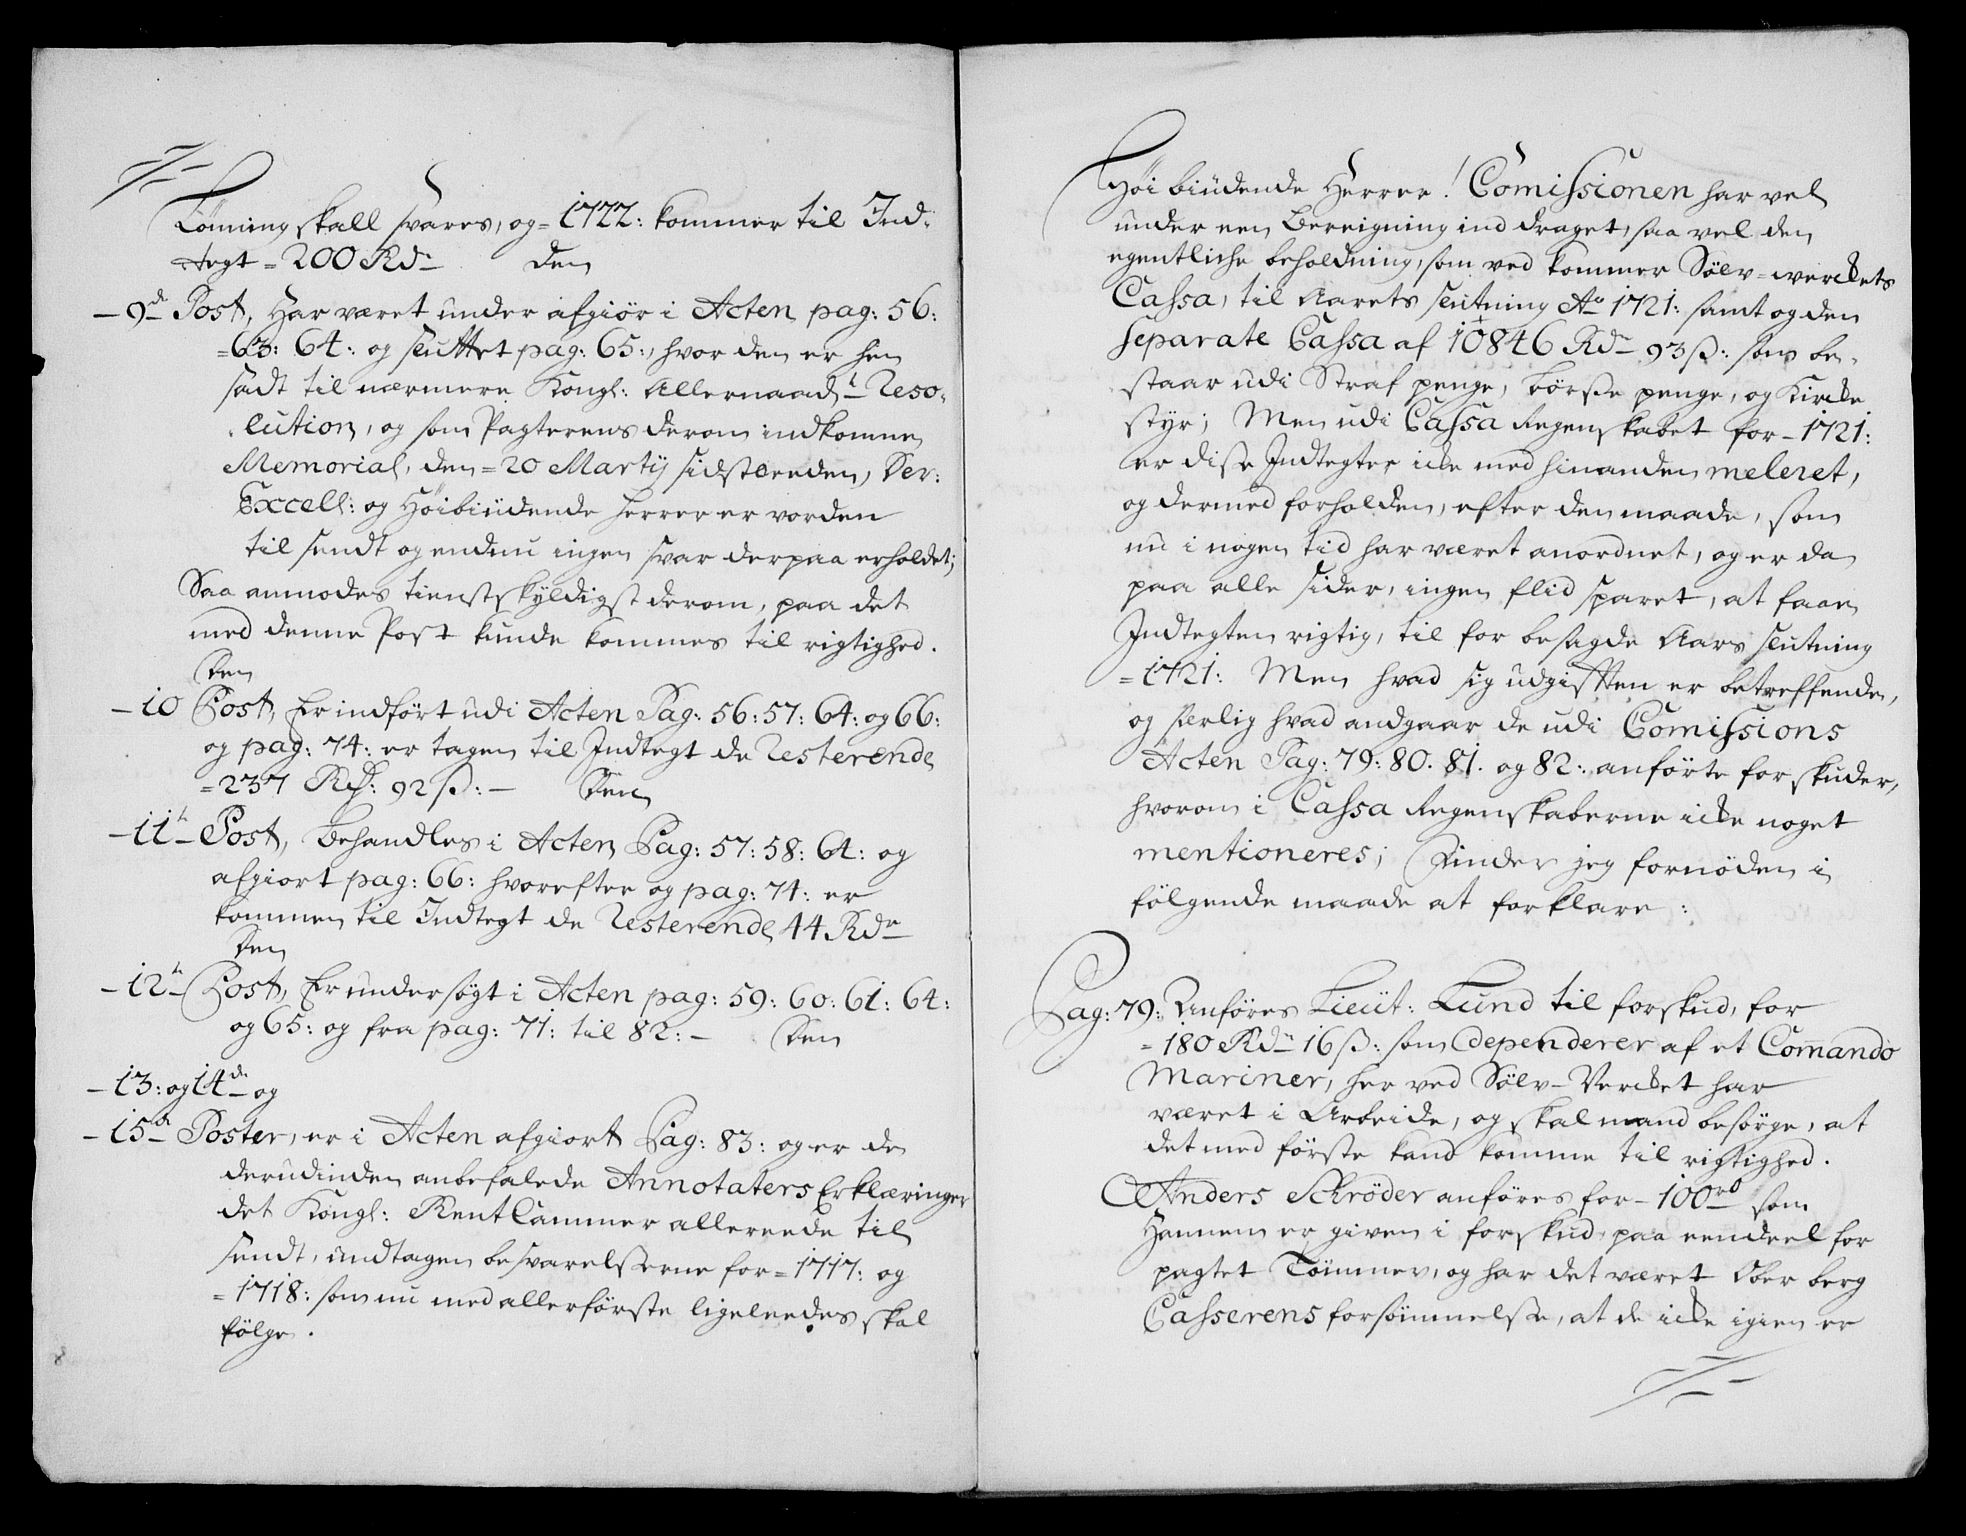 Lönning skall svares, og = 1722: kommer til Ind=
tegt = 200 Rdr den
- 9de Post, Har været under afgiør i Acten pag: 56:
= 63: 64: og sluttet pag: 65:, hvor den er hen
sadt til nærmere Kongl: Allernaadt Reso,
lution, og som Pagterens derom indkomne
Memorial, den = 20 Martij sidstleeden, Der:
Excell: og Höibiüdende herrer er vorden
til sendt og endnu ingen svar derpaa erholdet;
Saa anmodes tienstskyldigst derom, paa det
med denne Post kunde kommes til rigtighed.
Den
- 10 Post, Er indført udi Acten Pag: 56: 57: 64: og 66:
og pag: 74: er tagen til Indtegt de Resterende
= 237 Rd: 92 ß: - Den
- 11te Post, Behandles i Acten Pag: 57: 58: 64: og
afgiort pag: 66: hvorefter og pag: 74: er
kommen til Indtegt de Resterende 44 Rdr
Den
- 12te Post, Er undersøgt i Acten pag: 59: 60: 61: 64:
og 65: og fra pag: 71: til 82: - Den
- 13: og 14de og
- 15de Poster, er i Acten afgiort Pag: 83: og er de
derudinden anbefalede Annotaters Erklæringer
det Kongl: RentCammer allereede til
sendt, undtagen besvarelsserne for = 1717: og
= 1718: som nu med allerförste ligeleedes skal
fölge.
Höibiüdende Herrer! Comissionen har vel
under een Bereigning ind draget, saa vel den
egentliche beholdning, som ved kommer Sölv=werckets
Cassa, til Aarets slutning Ao 1721: samt og den
separate Cassa af 10846 Rdr 93 ß: som be,
staar udi Straf penge, börsse penge, og Kircke
styr; Men udi Cassa Regenskabet for - 1721:
er disse Indtegter icke med hinanden meleret,
og dermed forholden, efter den maade, som
nu i nogen tid har været anordnet, og er da
paa alle sider, ingen flid sparet, at faae
Indtegten rigtig, til for besagde Aars slutning
= 1721: Men hvad sig udgifften er betreffende,
og særlig hvad andgaar de udi Comissions
Acten Pag: 79: 80. 81. og 82: anförte forskuder,
hvorom i Cassa Regenskaberne icke noget
mentioneres; Finder jeg fornöden i
fölgende maade at forklare:
Pag: 79: Anföres Lieüt: Lund til forskud, for
= 180 Rdr 16 ß: som dependerer af et Comando
Mariner, her ved Sölv-Vercket har
været i Arbeide, og skal mand besörge, at
det med förste kand komme til rigtighed.
Anders Schrøder anföres for - 100 rd som
Hannem er given i forskud, paa eendeel for
pagtet Tömmer, og har det været Ober berg
Casserens forsömmelsse, at de icke igien er